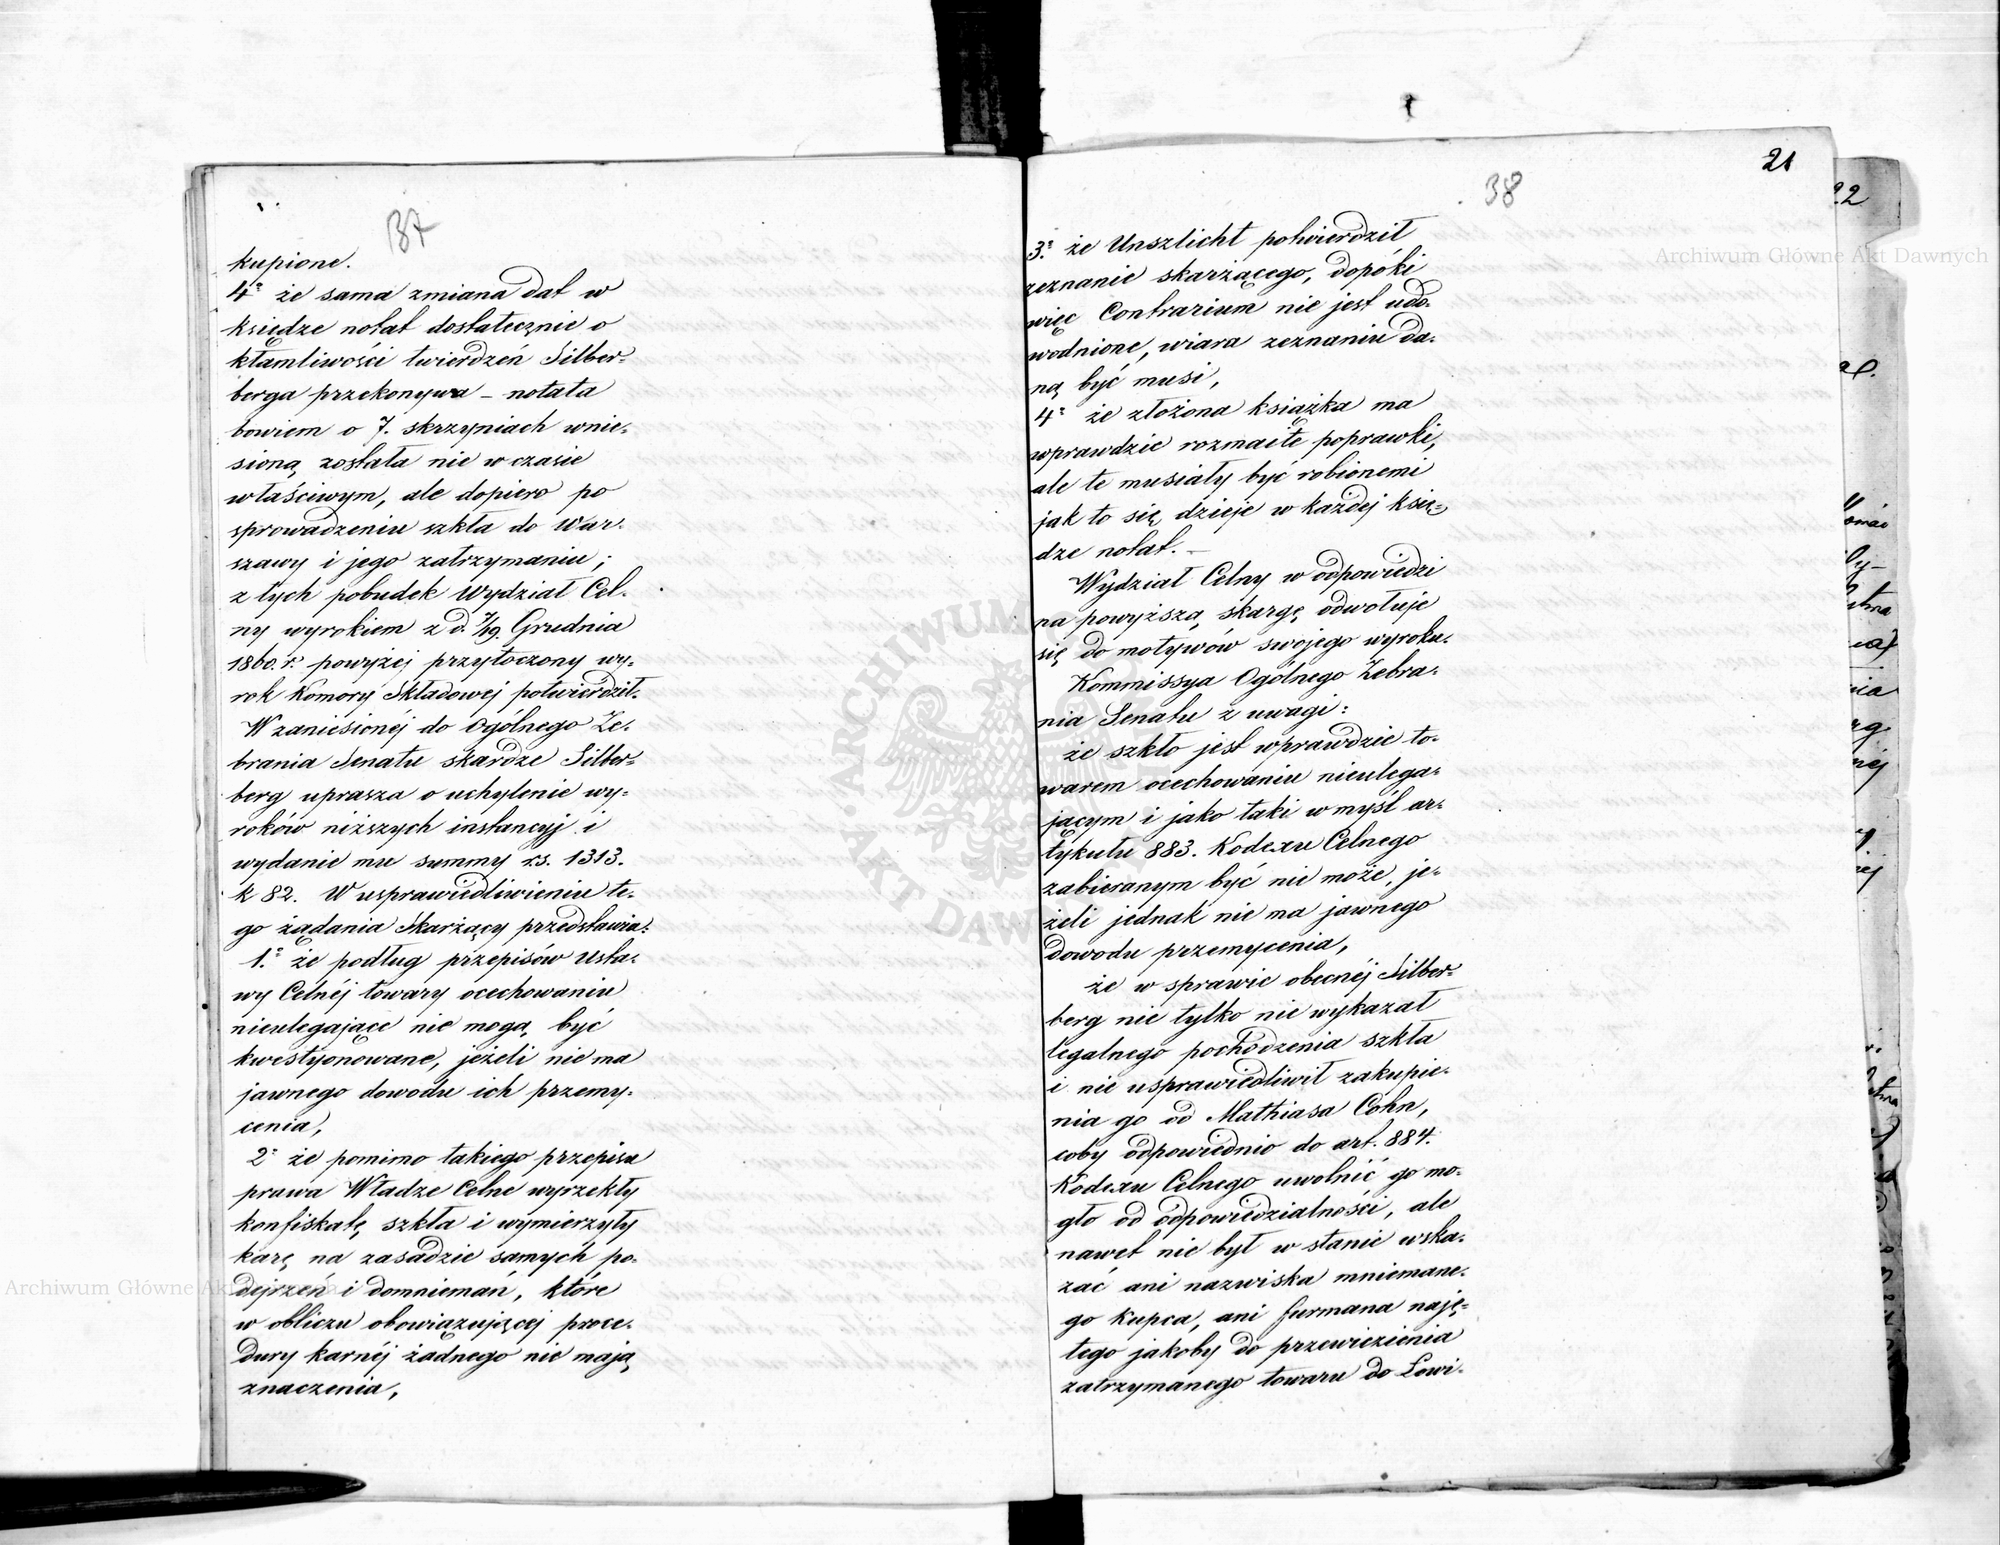 37
kupione.
4º że sama zmiana dat w
księdze notat dostatecznie o
kłamliwości twierdzeń Silber-
berga przekonywa – notata
bowiem o 7. skrzyniach wnie-
sioną została nie w czasie
właściwym, ale dopiero po
sprowadzeniu szkła do War-
szawy i jego zatrzymaniu;
z tych pobudek Wydział Cel-
ny wyrokiem z d. 7/19 Grudnia
1860. r. powyżej przytoczony wy-
rok Komory Składowej potwierdził.
W zaniesionéj do Ogólnego Ze-
brania Senatu skardze Silber-
berg uprasza o uchylenie wy-
roków niższych instancyj i
wydanie mu summy rs. 1313.
k 82. W usprawiedliwieniu te-
go żądania Skarżący przedstawia:
1.º że podług przepisów Usta-
wy Celnéj towary ocechowaniu
nieulegające nie mogą być
kwestyonowane, jeżeli nie ma
jawnego dowodu ich przemy-
cenia,
2º że pomimo takiego przepisu
prawa Władze Celne wyrzekły
konfiskatę szkła i wymierzyły
karę na zasadzie samych po-
dejrzeń i domniemań, które
w obliczu obowiązującej proce-
dury karnéj żadnego nie mają
znaczenia,
38
21
3.º że Unszlicht potwierdził
zeznanie skarżącego, dopóki
więc Contrarium nie jest udo-
wodnione, wiara zeznaniu da-
ną być musi,
4º że złożona książka ma
wprawdzie rozmaite poprawki,
ale te musiały być robionemi
jak to się dzieje w każdej księ-
dze notat. –
Wydział Celny w odpowiedzi
na powyższą skargę odwołuje
się do motywów swojego wyroku.
Kommissya Ogólnego Zebra-
nia Senatu z uwagi:
że szkło jest wprawdzie to-
warem ocechowaniu nieulega-
jącym i jako taki w myśl ar-
tykułu 883. Kodexu Celnego
zabieranym być nie może, je-
żeli jednak nie ma jawnego
dowodu przemycenia,
że w sprawie obecnéj Silber-
berg nie tylko nie wykazał
legalnego pochodzenia szkła
i nie usprawiedliwił zakupie-
nia go od Mathiasa Cohn,
coby odpowiednio do art. 884.
Kodexu Celnego uwolnić go mo-
gło od odpowiedzialności, ale
nawet nie był w stanie wska-
zać ani nazwiska mniemane-
go Kupca, ani furmana naję-
tego jakoby do przewiezienia
zatrzymanego towaru do Łowi-
22
Archiwum Główne Akt Dawnych
Archiwum Główne Akt Dawnych
ARCHIWUM
AKT DAWNYCH